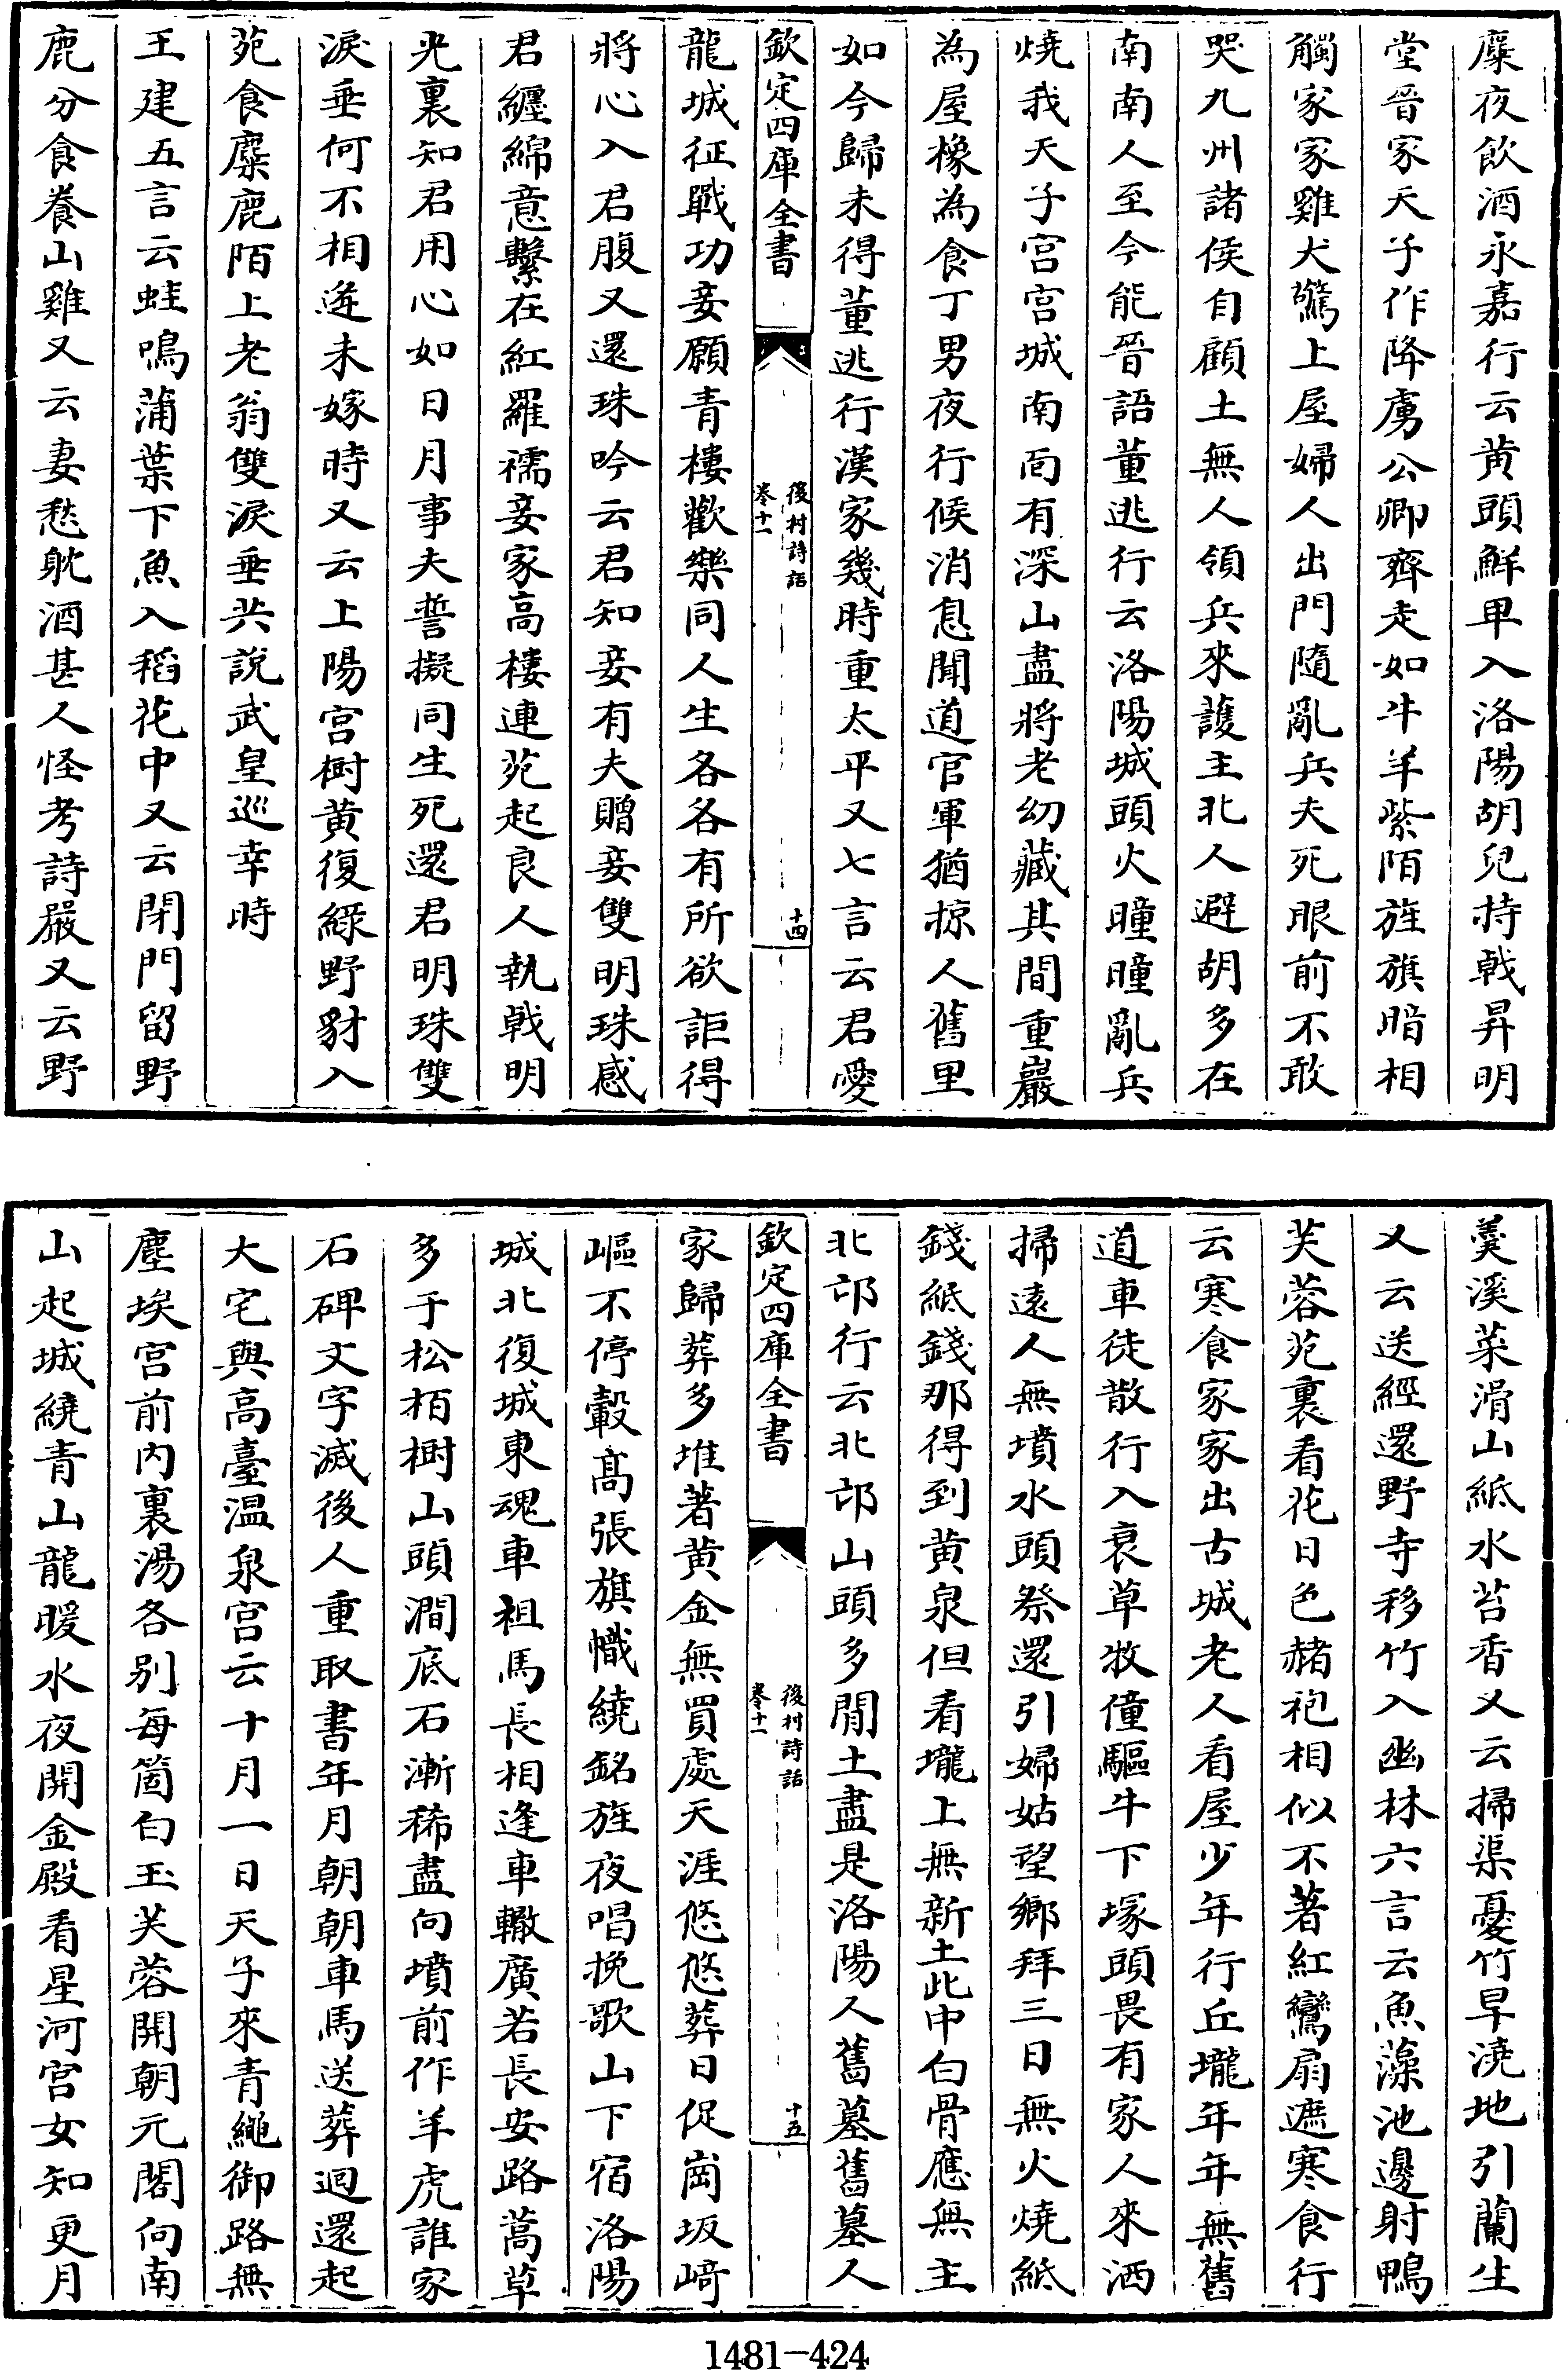 麋夜飲酒永嘉行云黄頭鮮卑入洛陽胡兒持戟昇明
堂晉家天子作降虜公卿齊走如牛羊紫陌旌旗暗相
觸家家雞犬驚上屋婦人出門隨亂兵夫死眼前不敢
哭九州諸侯自顧土無人領兵來護主北人避胡多在
南南人至今能晉語董逃行云洛陽城頭火曈曈亂兵
燒我天子宫宫城南面有深山盡將老幼藏其間重巖
為屋橡為食丁男夜行候消息聞道官軍猶掠人舊里
如今歸未得董逃行漢家幾時重太平又七言云君愛
欽定四庫全書
後村詩話
卷十一
十四
龍城征戰功妾願青樓歡樂同人生各各有所欲詎得
將心入君腹又還珠吟云君知妾有夫贈妾雙明珠感
君纏綿意繫在紅羅襦妾家高樓連苑起良人執戟明
光裏知君用心如日月事夫誓擬同生死還君明珠雙
淚垂何不相逢未嫁時又云上陽宫樹黄復緑野豺入
苑食麋鹿陌上老翁雙淚垂共說武皇巡幸時
王建五言云蛙鳴蒲葉下魚入稻花中又云閉門留野
鹿分食養山雞又云妻愁躭酒甚人怪考詩嚴又云野
羮溪菜滑山紙水苔香又云掃渠憂竹旱澆地引蘭生
又云送經還野寺移竹入幽林六言云魚藻池邊射鴨
芙蓉苑裏看花日色赭袍相似不著紅鸞扇遮寒食行
云寒食家家出古城老人看屋少年行丘壠年年無舊
道車徒散行入衰草牧僮驅牛下塚頭畏有家人來洒
掃遠人無墳水頭祭還引婦姑望鄉拜三日無火燒紙
錢紙錢那得到黄泉但看壠上無新土此中白骨應無主
北邙行云北邙山頭多閒土盡是洛陽人舊墓舊墓人
欽定四庫全書
後村詩話
卷十一
十五
家歸葬多堆著黄金無買處天涯悠悠葬日促崗坂﨑
嶇不停轂髙張旗幟繞銘旌夜唱挽歌山下宿洛陽
城北復城東魂車祖馬長相逢車轍廣若長安路蒿草
多于松栢樹山頭澗底石漸稀盡向墳前作羊虎誰家
石碑文字滅後人重取書年月朝朝車馬送葬迴還起
大宅與高臺温泉宫云十月一日天子來青繩御路無
塵埃宫前内裏湯各别每箇白玉芙蓉開朝元閣向南
山起城繞青山龍暖水夜開金殿看星河宫女知更月
1481-424